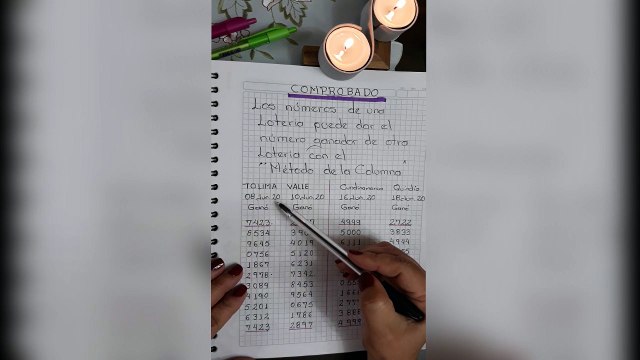 COMPROBADO
Los números de una
Lotería puede dar el
número ganador de otra
Lotería con el
"Método de la Columna"
TOLIMA VALLE Cundinamarca Quindío
08.Jun.20 10.Jun.20 16.Jun.20 18.Jun.20
Ganó Ganó Ganó Ganó
7423 4999 2722
8534 5000 3833
7645 4019 6111 4944
0756 5120
1867 6231
2978 7342
3089 8453
4190 9564
5201 0675
6312 1786 3888
7423 2897 4999